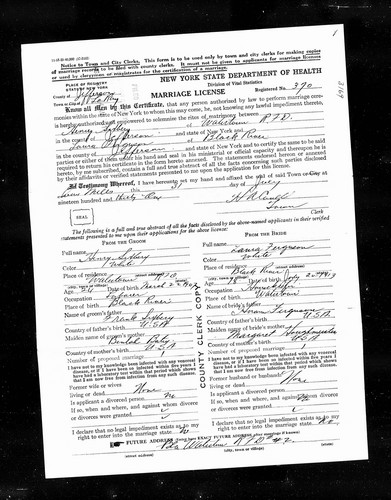 Notice to Town and City Clerks. This form is to be used only by town and city clerks for making copies
of marriage records to be filed with county clerks. It must not be given to applicants for marriage licenses
or used by clergymen or magistrates for the certification of a marriage.
STATE OF NEW YORK
NEW YORK STATE DEPARTMENT OF HEALTH
County of Jefferson
Division of Vital Statistics
Town or City of Le Ray
MARRIAGE LICENSE
Registered No. 390
Know all Men by this Certificate, that any person authorized by law to perform marriage cere-
monies within the state of New York to whom this may come, he, not knowing any lawful impediment thereto,
is hereby authorized and empowered to solemnize the rites of matrimony between
Henry of Watertown R.F.D.
in the county of Jefferson and state of New York and
Laura Ferguson of Black River
in the county of Jefferson and state of New York and to certify the same to be said
parties or either of them under his hand and seal in his ministerial or official capacity and thereupon he is
required to return his certificate in the form hereto annexed. The statements endorsed hereon or annexed
hereto, by me subscribed, contain a full and true abstract of all the facts concerning such parties disclosed
by their affidavits or verified statements presented to me upon the application for this license.
In Testimony Whereof, I have hereunto set my hand and affixed the seal of said Town or City at
Evans Mills this day of July
nineteen hundred and Thirty One
SEAL
Town Clerk
The following is a full and true abstract of all the facts disclosed by the above-named applicants in their verified
statements presented to me upon their applications for the above license:
FROM THE GROOM
Full name Henry
Color White
Place of residence Watertown R.F.D.
Age 24 Date of birth
Occupation Laborer
Place of birth Black River
Name of groom's father Frank
Country of father's birth U.S.A.
Maiden name of groom's mother
Country of mother's birth U.S.A.
Number of proposed marriage 1
I have not to my knowledge been infected with any venereal
disease, or if I have been so infected within five years I
have had a laboratory test within that period which shows
that I am now free from infection from any such disease.
Former wife or wives
living or dead None
Is applicant a divorced person no
If so, when and where, and against whom divorce
or divorces were granted
I declare that no legal impediment exists as to my
right to enter into the marriage state no
FROM THE BRIDE
Full name Laura Ferguson
Color White
Place of residence Black River
Age 18 Date of birth
Occupation Housekeeper
Place of birth Watertown
Name of bride's father Ferguson
Country of father's birth U.S.A.
Maiden name of bride's mother Margaret
Country of mother's birth U.S.A.
Number of proposed marriage 1
I have not to my knowledge been infected with any venereal
disease, or if I have been so infected within five years I
have had a laboratory test within that period which shows
that I am now free from infection from any such disease.
Former husband or husbands
living or dead None
Is applicant a divorced person no
If so, when and where, and against whom divorce
or divorces were granted
I declare that no legal impediment exists as to my
right to enter into the marriage state no
COUNTY CLERK COPY
FUTURE ADDRESS
Watertown R.F.D. #2